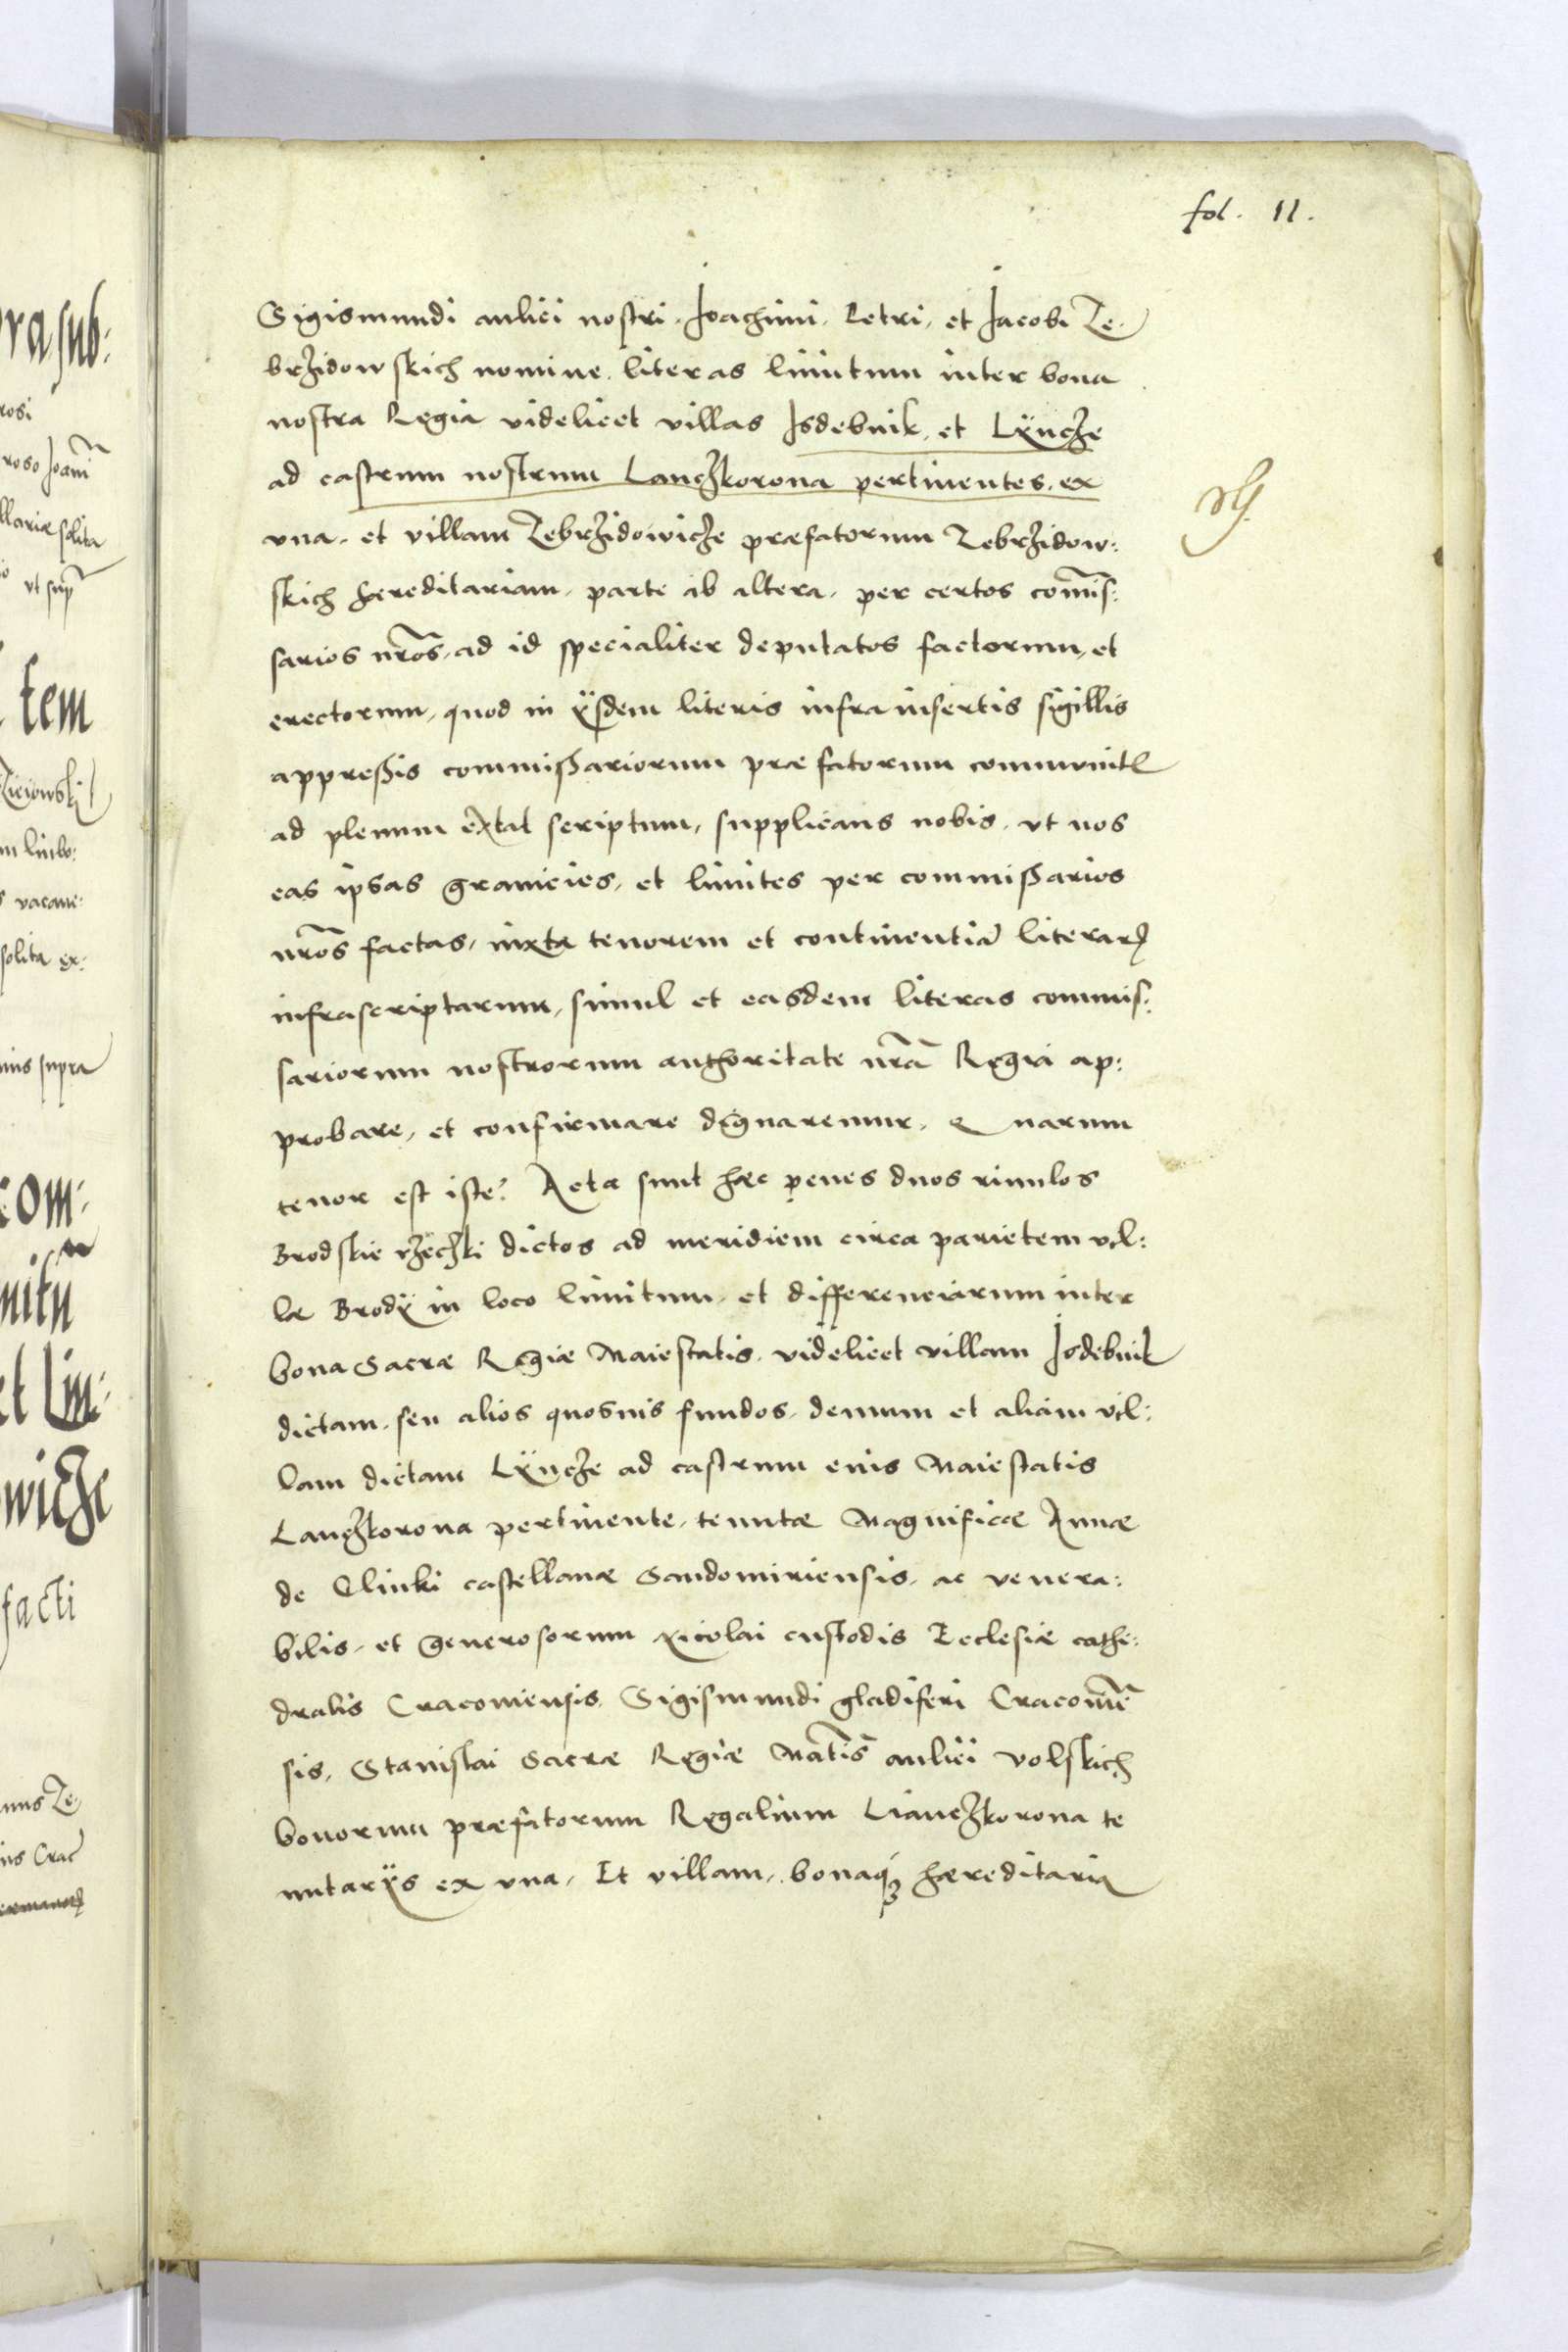 fol. 11.
Sigismundi aulici nostri. Joachimi. Petri, et Jacobi Ze-
brzidowskich nomine. literas limitum inter bona
nostra Regia videlicet villas Isdebnik, et Lÿncze
ad castrum nostrum Lanczkorona pertinentes. ex
vna. et villam Zebrzidowicze præfatorum Zebrzidow:
skich hæreditariam. parte ab altera. per certos com̃is:
sarios nr̃os. ad id specialiter deputatos factorum, et
erectorum, quod in ÿsdem literis infra insertis sigillis
appreßis commißariorum præfatorum communitl
ad plenum extat scriptum, supplicans nobis. vt nos
eas ipsas granicies, et limites per commißarios
nr̃os factas, iuxta tenorem et continentiã literarꝝ
infrascriptarum, simul et easdem literas commis:
sariorum nostrorum authoritate nr̃a Regia ap:
probare, et confirmare dignaremur. Quarum
tenor est iste. Acta sunt hæc penes duos riuulos
Brodskie rzeczki dictos ad meridiem circa parietem vil:
læ Brodÿ in loco limitum, et differenciarum inter
bona Sacræ Regiæ Maiestatis. videlicet villam Isdebnik
dictam. seu alios quosuis fundos. demum et aliam vil:
lam dictam Lÿncze ad castrum eius Maiestatis
Lanczkorona pertinente. tenutæ Magnificæ Annæ
de Clinki castellanæ Sandomiriensis. ac venera:
bilis. et Generosorum Nicolai custodis Ecclesiæ cathe:
dralis Cracouiensis. Sigismundi gladiferi Cracouiẽ
sis. Stanislai Sacræ Regiæ Mãtis aulici Volskich
bonorum præfatorum Regalium Lianczkorona te
nutarÿs ex vna. Et villam. bonaqꝫ hæreditaria
ra sub:
rosi
roso Joañi
llariæ solita
vt supr
tem
m limbo:
vacane:
solita ex:
ius supra
com:
mitu
et Lin:
wicze
facti
nus Ze
is Crac